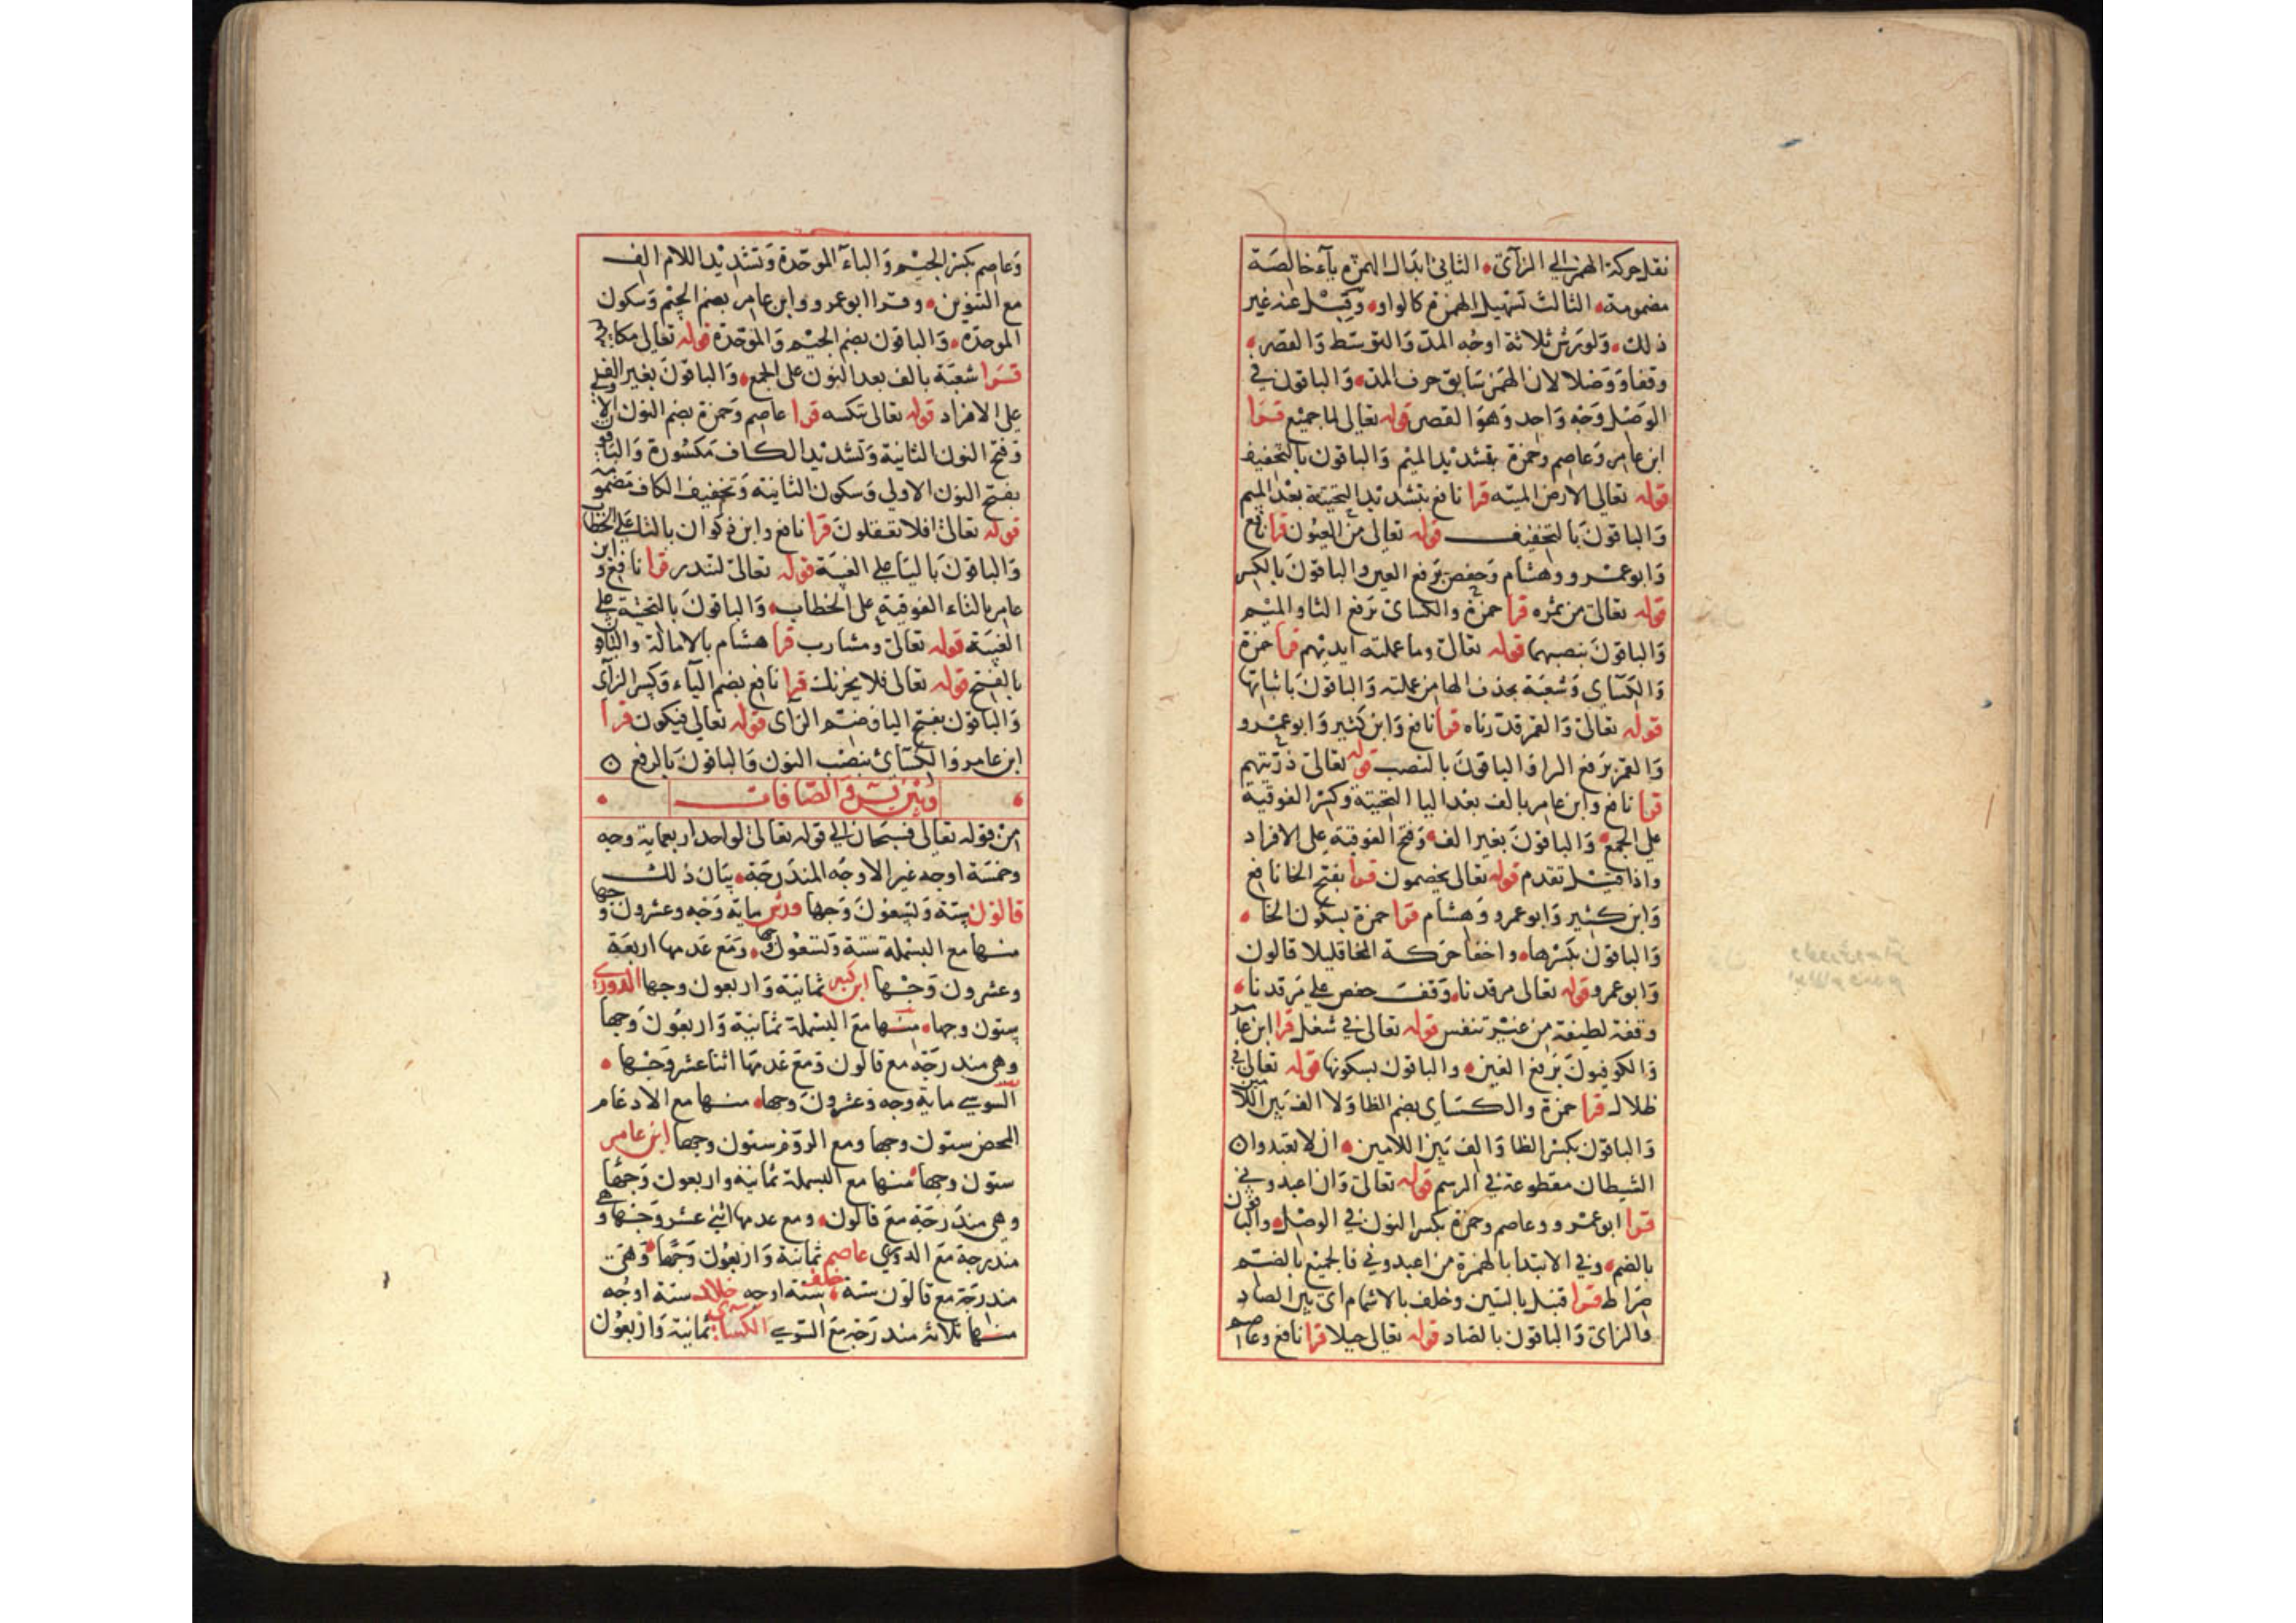 نقل حركة الهمز الي الزآي الثاني ابدال الهمزة يآء خالصة
مضمومة الثالث تسهيل الهمزة كالواو وقيل عنه غير
ذلك ولورش ثلاثة اوجه المد والتوسط والقصر
وقفا ووصلا لان الهمز سابق حرف المد والباقون في
الوصل وجه واحد وهو القصر قوله تعالي لما جميع قرا
ابن عامر وعاصم وحمزة بتشديد الميم والباقون بالتخفيف
قوله تعالي الارض الميته قرا نافع بتشديد التحتية بعد الميم
والباقون بالتخفيف قوله تعالي من العيون قرا نافع
وابو عمرو وهشام وحفص برفع العين والباقون بالكسر
قوله تعالي من ثمره قرا حمزة والكسائي برفع الثا والميم
والباقون بنصبهما قوله تعالي وما عملته ايديهم قرا حمزة
والكسآي وشعبة بحذف الها من عملته والباقون باثباتها
قوله تعالي والقمر قدرناه قرا نافع وابن كثير وابو عمرو
والقمر برفع الرا والباقون بالنصب قوله تعالي ذريتهم
قرا نافع وابن عامر بالف بعد اليا التحتية وكسر الفوقية
علي الجمع والباقون بغير الف وفتح الفوقية علي الافراد
واذا قيل تقدم قوله تعالي يخصمون قرا بفتح الخا نافع
وابن كثير وابو عمرو وهشام قرا حمزة بسكون الخا
والباقون بكسرها واخفا حركة الخا قليلا قالون
وابو عمرو قوله تعالي مرقدنا وقف حفص علي مرقدنا
وقفة لطيفة من غير تنفس قوله تعالي في شغل قرا ابن عامر
والكوفيون برفع الغين والباقون بسكونها قوله تعالي في
ظلال قرا حمزة والكسآي بضم الظا ولا الف بين اللامين
والباقون بكسر الظا والف بين اللامين ان لا تعبدوا
الشيطان مقطوعة في الرسم قوله تعالي وان اعبدوني
قرا ابو عمرو وعاصم وحمزة بكسر النون في الوصل والباقون
بالضم وفي الابتدا بالهمزة من اعبدوني فالجميع بالضم
صراط قرا قنبل بالسين وخلف بالاشمام اي بين الصاد
والزاي والباقون بالصاد قوله تعالي جبلا قرا نافع وعاصم
وعاصم بكسر الجيم والبآء الموحدة وتشديد اللام الف
مع التنوين وقرا ابو عمرو وابن عامر بضم الجيم وسكون
الموحدة والباقون بضم الجيم والموحدة قوله تعالي مكانتهم
قرا شعبة بالف بعد النون علي الجمع والباقون بغير الف
علي الافراد قوله تعالي ننكسه قرا عاصم وحمزة بضم النون الاولي
وفتح النون الثانية وتشديد الكاف مكسورة والباقون
بفتح النون الاولي وسكون الثانية وتخفيف الكاف مضمومة
قوله تعالي افلا تعقلون قرا نافع وابن ذكوان بالتا علي الخطاب
والباقون باليا علي الغيبة قوله تعالي لتنذر قرا نافع وابن
عامر بالتاء الفوقية علي الخطاب والباقون بالتحتية علي
الغيبة قوله تعالي ومشارب قرا هشام بالامالة والباقون
بالفتح قوله تعالي فلا يحزنك قرا نافع بضم اليآء وكسر الزآي
والباقون بفتح اليا وضم الزآي قوله تعالي فيكون قرا
ابن عامر والكسائي بنصب النون والباقون بالرفع
وبين يس والصافات
من قوله تعالي فسبحان الي قوله تعالي لواحد اربعماية وجه
وخمسة اوجه غير الاوجه المندرجة بيان ذلك
قالون ستة وتسعون وجها ورش ماية وجه وعشرون وجها
منها مع البسملة ستة وتسعون وجها ومع عدمها اربعة
وعشرون وجها ابن كثير ثمانية واربعون وجها الدوري
ستون وجها منها مع البسملة ثمانية واربعون وجها
وهي مندرجة مع قالون ومع عدمها اثنا عشر وجها
السوسي ماية وجه وعشرون وجها منها مع الادغام
المحض ستون وجها ومع الروم ستون وجها ابن عامر
ستون وجها منها مع البسملة ثمانية واربعون وجها
وهي مندرجة مع قالون ومع عدمها اثني عشر وجها وهي
مندرجة مع الدوري عاصم ثمانية واربعون وجها وهي
مندرجة مع قالون ستة خلف ستة اوجه خلاد ستة اوجه
منها ثلاثة مندرجة مع السوسي الكسائي ثمانية واربعون